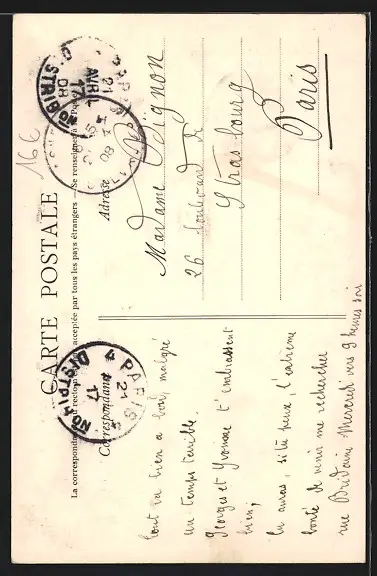 CARTE POSTALE
La correspondance au recto n'est pas acceptée par tous les pays étrangers — Se renseigner à la Poste
Correspondance
Adresse
16 €
PARIS
21
AVRIL
17
08
DISTRIBUTION
PARIS
21
17
DISTRIBUTION
Tout va bien à bord, malgré
un temps terrible.
Georges et Yvonne t'embrassent
bien,
tu auras, si tu peux, l'extrême
bonté de venir me rechercher
rue Bridaine Mercredi vers 9 heures soir
Madame
26 boulevard de
Strasbourg
Paris